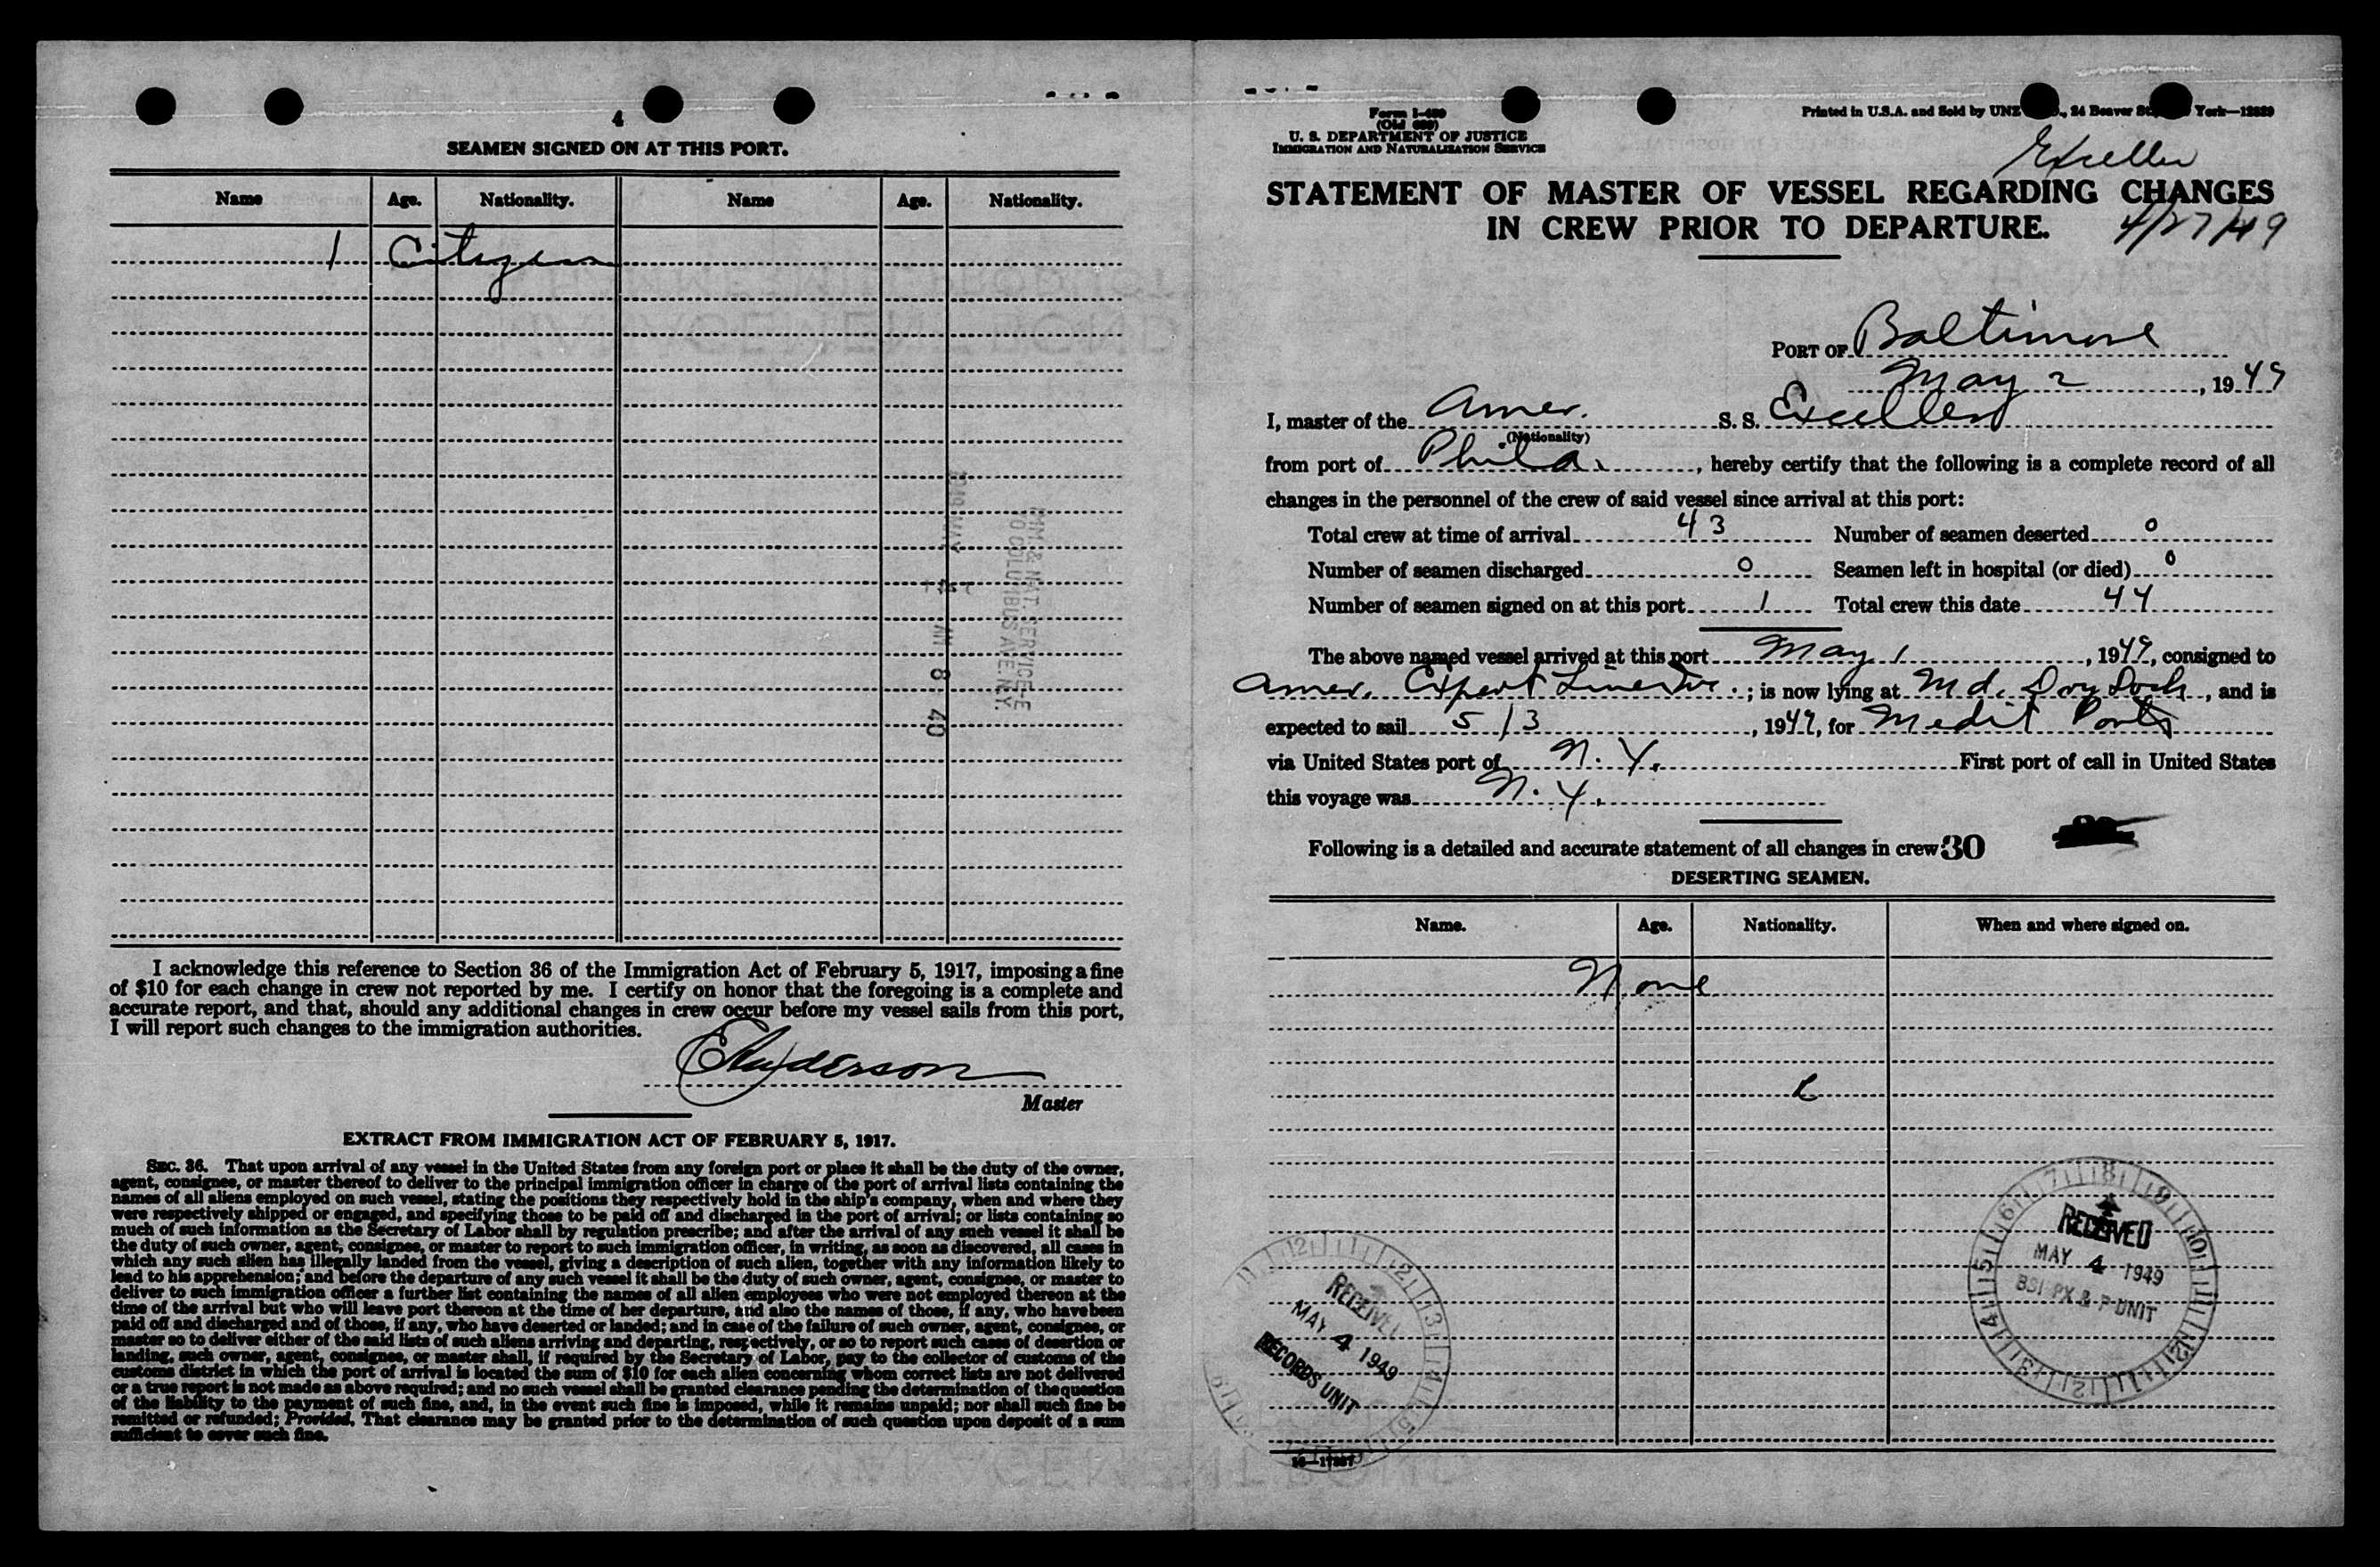 4
SEAMEN SIGNED ON AT THIS PORT.
Name Age. Nationality. Name Age. Nationality.
1 Citizen
IMM. & NAT. SERVICE
70 COLUMBUS AVE. N.Y.
1949 MAY - 4 - AM 8 40
I acknowledge this reference to Section 36 of the Immigration Act of February 5, 1917, imposing a fine
of $10 for each change in crew not reported by me. I certify on honor that the foregoing is a complete and
accurate report, and that, should any additional changes in crew occur before my vessel sails from this port,
I will report such changes to the immigration authorities.
Anderson
Master
EXTRACT FROM IMMIGRATION ACT OF FEBRUARY 5, 1917.
SEC. 36. That upon arrival of any vessel in the United States from any foreign port or place it shall be the duty of the owner,
agent, consignee, or master thereof to deliver to the principal immigration officer in charge of the port of arrival lists containing the
names of all aliens employed on such vessel, stating the positions they respectively hold in the ship's company, when and where they
were respectively shipped or engaged, and specifying those to be paid off and discharged in the port of arrival; or lists containing so
much of such information as the Secretary of Labor shall by regulation prescribe; and after the arrival of any such vessel it shall be
the duty of such owner, agent, consignee, or master to report to such immigration officer, in writing, as soon as discovered, all cases in
which any such alien has illegally landed from the vessel, giving a description of such alien, together with any information likely to
lead to his apprehension; and before the departure of any such vessel it shall be the duty of such owner, agent, consignee, or master to
deliver to such immigration officer a further list containing the names of all alien employees who were not employed thereon at the
time of the arrival but who will leave port thereon at the time of her departure, and also the names of those, if any, who have been
paid off and discharged and of those, if any, who have deserted or landed; and in case of the failure of such owner, agent, consignee, or
master so to deliver either of the said lists of such aliens arriving and departing, respectively, or so to report such cases of desertion or
landing, such owner, agent, consignee, or master shall, if required by the Secretary of Labor, pay to the collector of customs of the
customs district in which the port of arrival is located the sum of $10 for each alien concerning whom correct lists are not delivered
or a true report is not made as above required; and no such vessel shall be granted clearance pending the determination of the question
of the liability to the payment of such fine, and, in the event such fine is imposed, while it remains unpaid; nor shall such fine be
remitted or refunded; Provided, That clearance may be granted prior to the determination of such question upon deposit of a sum
sufficient to cover such fine.
Form I-489
(Old 689)
U. S. DEPARTMENT OF JUSTICE
IMMIGRATION AND NATURALIZATION SERVICE
Printed in U.S.A. and Sold by UNZ 24 Beaver St York—12829
Exceller
STATEMENT OF MASTER OF VESSEL REGARDING CHANGES
IN CREW PRIOR TO DEPARTURE.
4/27/49
PORT OF Baltimore
May 2, 1949
I, master of the Amer. S. S. Exceller
(Nationality)
from port of Phila., hereby certify that the following is a complete record of all
changes in the personnel of the crew of said vessel since arrival at this port:
Total crew at time of arrival 43 Number of seamen deserted 0
Number of seamen discharged 0 Seamen left in hospital (or died) 0
Number of seamen signed on at this port 1 Total crew this date 44
The above named vessel arrived at this port May 1, 1949, consigned to
Amer. Export Lines Inc.; is now lying at Md. Dry Dock, and is
expected to sail 5/3, 1949, for Medit Ports
via United States port of N. Y. First port of call in United States
this voyage was N. Y.
Following is a detailed and accurate statement of all changes in crew 30
DESERTING SEAMEN.
Name. Age. Nationality. When and where signed on.
None
RECEIVED
MAY 4 1949
BSI-PX & P-UNIT
RECEIVED
MAY 4 1949
RECORDS UNIT